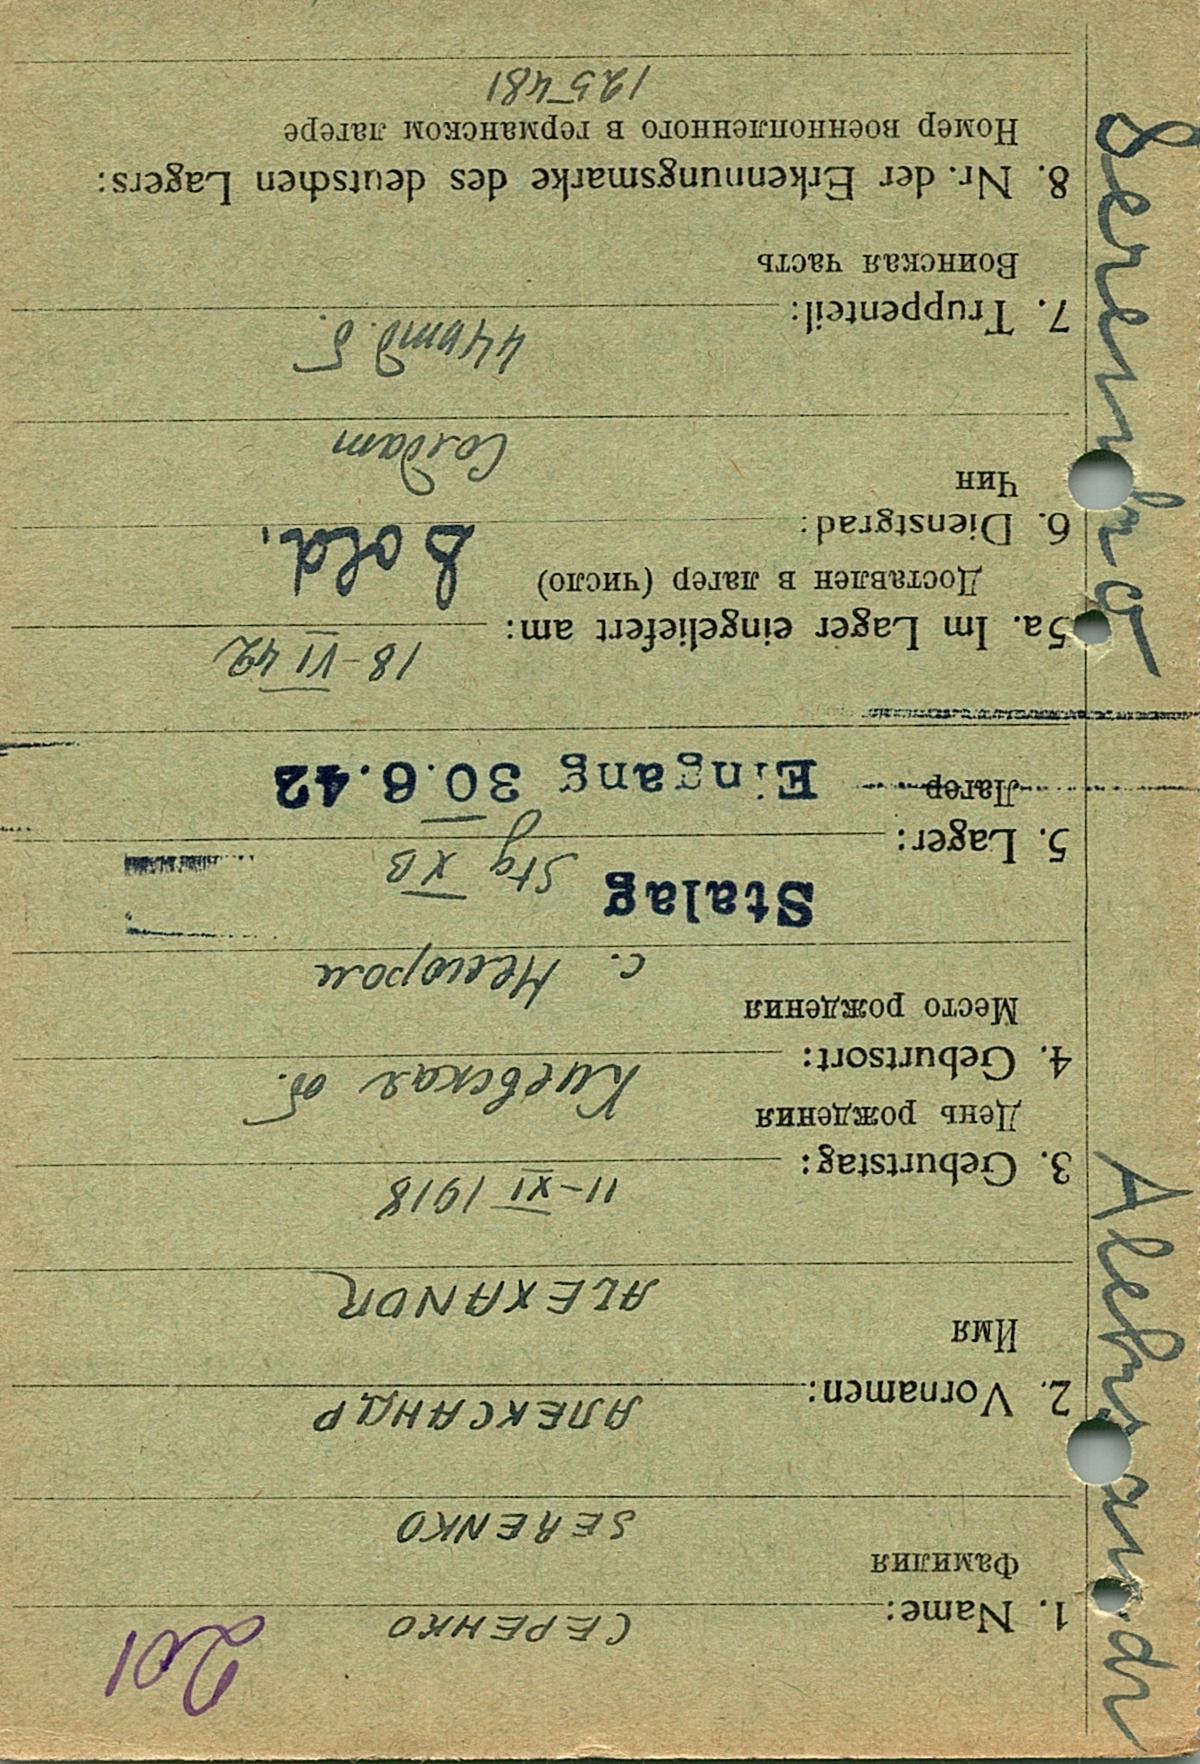 201
1. Name: СЕРЕНКО
Фамилия
SERENKO
2. Vornamen: АЛЕКСАНДР
Имя
ALEXANDR
3. Geburtstag: 11-XI 1918
День рождения
4. Geburtsort: Киевская об.
Место рождения
с.
Stalag
5. Lager: Stg XB
Лагер
Eingang 30.6.42
5a. Im Lager eingeliefert am: 18-VI 42
Доставлен в лагер (число)
6. Dienstgrad: Sold.
Чин
Солдат
7. Truppenteil:
Воинская часть
8. Nr. der Erkennungsmarke des deutschen Lagers:
Номер военнопленного в германском лагере
125481
Serenko
Alekrandr